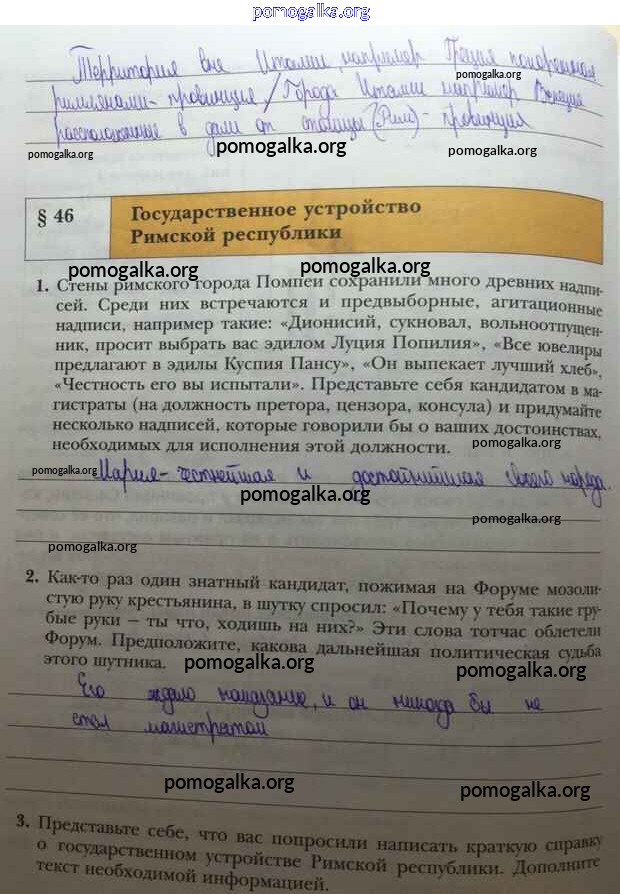 pomogalka.org
Территория вне Италии, например Греция покоренная
pomogalka.org
римлянами - провинция / Города Италии например Венеция
расположенные в дали от столицы (Рим) - провинция
pomogalka.org pomogalka.org pomogalka.org
§ 46
Государственное устройство
Римской республики
pomogalka.org pomogalka.org
1. Стены римского города Помпеи сохранили много древних надпи-
сей. Среди них встречаются и предвыборные, агитационные
надписи, например такие: «Дионисий, сукновал, вольноотпущен-
ник, просит выбрать вас эдилом Луция Попилия», «Все ювелиры
предлагают в эдилы Куспия Пансу», «Он выпекает лучший хлеб»,
«Честность его вы испытали». Представьте себя кандидатом в ма-
гистраты (на должность претора, цензора, консула) и придумайте
несколько надписей, которые говорили бы о ваших достоинствах,
необходимых для исполнения этой должности.
pomogalka.org
pomogalka.org
Мария - честнейшая и достойнейшая своего народа.
pomogalka.org
pomogalka.org
pomogalka.org
2. Как-то раз один знатный кандидат, пожимая на Форуме мозоли-
стую руку крестьянина, в шутку спросил: «Почему у тебя такие гру-
бые руки – ты что, ходишь на них?» Эти слова тотчас облетели
Форум. Предположите, какова дальнейшая политическая судьба
этого шутника.
pomogalka.org pomogalka.org
Его ждало наказание, и он никогда бы не
стал магистратом
pomogalka.org pomogalka.org
3. Представьте себе, что вас попросили написать краткую справку
о государственном устройстве Римской республики. Дополните
текст необходимой информацией.